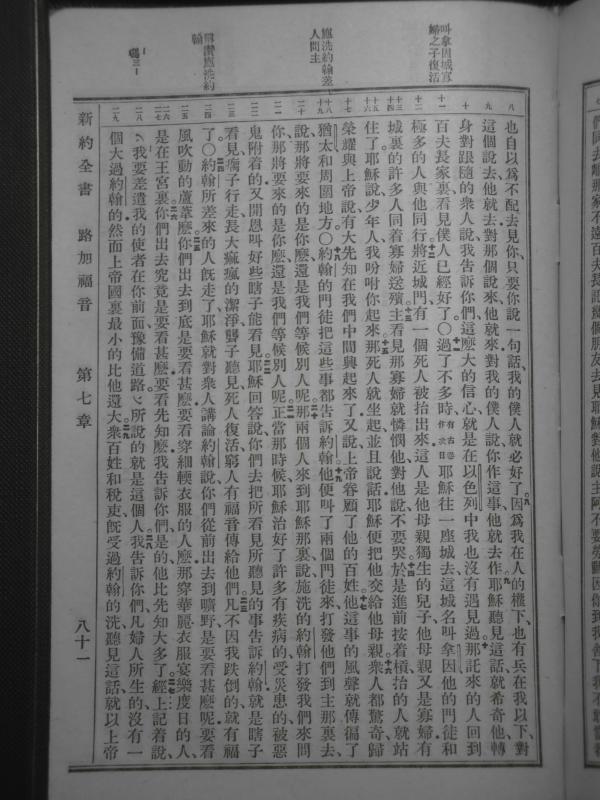 叫拿因城寡
婦之子復活
施洗約翰差
人問主
耶穌讚施洗約
翰
瑪三一
也自以爲不配去見你只要你說一句話、我的僕人就必好了因爲我在人的權下、也有兵在我以下、對
這個說去他就去對那個說來、他就來對我的僕人說你作這事他就去作耶穌聽見這話就希奇他轉
身對跟隨的衆人說我告訴你們這麽大的信心就是在以色列中我也沒有遇見過那託來的人回到
百夫長家裏看見僕人已經好了〇過了不多時有古卷作次日耶穌往一座城去這城名叫拿因他的門徒和
極多的人與他同行將近城門有一個死人被抬出來這人是他母親獨生的兒子他母親又是寡婦有
城裏的許多人同着寡婦送殯主看見那寡婦就憐憫他對他說不要哭於是進前按着槓抬的人就站
住了耶穌說少年人我吩咐你起來那死人就坐起並且說話耶穌便把他交給他母親衆人都驚奇歸
榮耀與上帝說有大先知在我們中間興起來了又說上帝眷顧了他的百姓他這事的風聲就傳徧了
猶太和周圍地方〇約翰的門徒把這些事都告訴約翰他便叫了兩個門徒來打發他們到主那裏去
說那將要來的是你麽還是我們等候別人呢那兩個人來到耶穌那裏說施洗的約翰打發我們來問
你那將要來的是你麽還是我們等候別人呢正當那時候耶穌治好了許多有疾病的受災患的被惡
鬼附着的又開恩叫好些瞎子能看見耶穌回答說你們去把所看見所聽見的事告訴約翰就是瞎子
看見瘸子行走長大痲瘋的潔淨聾子聽見死人復活窮人有福音傳給他們凡不因我跌倒的就有福
了〇約翰所差來的人既走了耶穌就對衆人講論約翰說你們從前出去到曠野是要看甚麽呢要看
風吹動的蘆葦麽你們出去到底是要看甚麽要看穿細輭衣服的人麽那穿華麗衣服宴樂度日的人、
是在王宮裏你們出去究竟是要看甚麽要看先知麽我告訴你們是的他比先知大多了經上記着說、
我要差遣我的使者在你前面豫備道路所說的就是這個人我告訴你們凡婦人所生的沒有一
個大過約翰的然而上帝國裏最小的比他還大衆百姓和稅吏旣受過約翰的洗聽見這話就以上帝
新約全書 路加福音 第七章 八十一